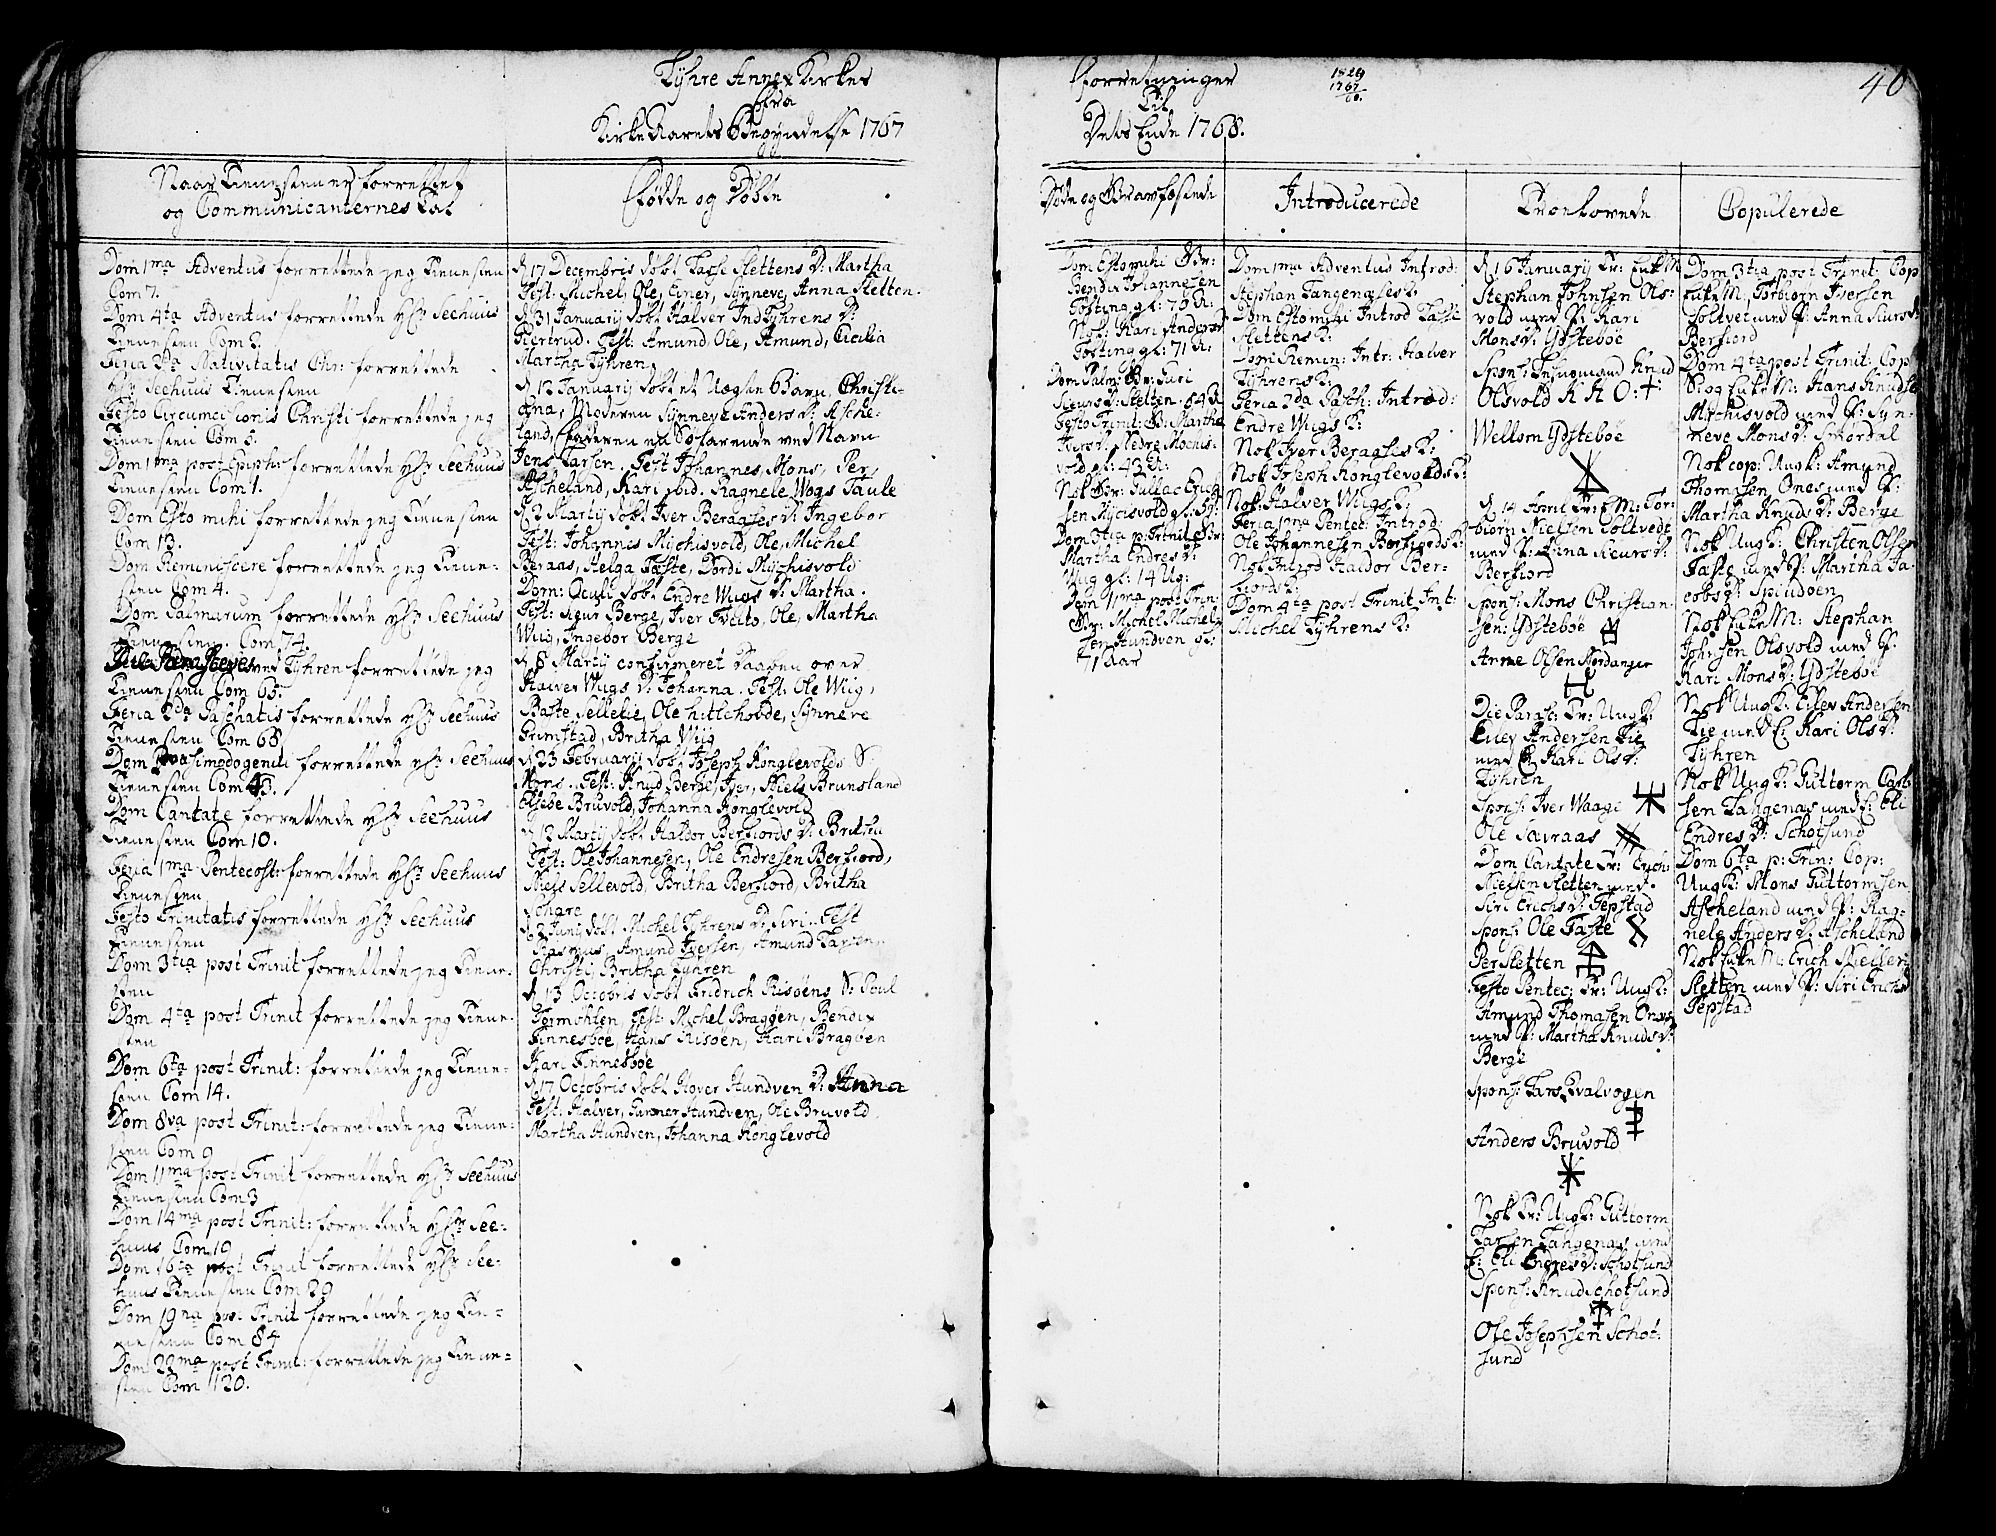 Tÿhre Annex Kirkes
fra
Kirke Aarets Begÿndelse 1767
Naar Tienesten er forrettet
og Communicanternes Tal
Fødde og Døbte
Dom 1ma Adventus forrettede jeg Tienesten
Com 7.
Dom 4ta Adventus forrettede Hr Seehuus
Tienesten Com 6.
Feria 2da Nativitatis Chr: forrettede
Hr Seehuus Tienesten
Festo Circumcisionis Christi forrettede jeg
Tienesten Com 5.
Dom 1ma post Epiph: forrettede Hr Seehuus
Tienesten Com 1.
Dom Esto mihi forrettede jeg Tienesten
Com 13.
Dom Reminiscere forrettede jeg Tiene-
sten Com 4.
Dom Palmarum forrettede Hr Seehuus
Tienesten. Com 74.
ved Tÿhren forrettede jeg
Tienesten Com 65.
Feria 2da Paschatis forrettede Hr Seehuus
Tienesten Com 68
Dom Quasimodogeniti forrettede Hr Seehuus
Tienesten Com 43.
Dom Cantate forrettede Hr Seehuus
Tienesten Com 10.
Feria 1ma Pentecost: forrettede Hr Seehuus
Tienesten
Festo Trinitatis forrettede Hr Seehuus
Tienesten
Dom 3tia post Trinit forrettede jeg Tiene-
sten
Dom 4ta post Trinit forrettede jeg Tiene-
sten
Dom 6ta post Trinit: forrettede jeg Tiene-
sten Com 14.
Dom 8va post Trinit: forrettede jeg Tiene-
sten Com 9
Dom 11ma post Trinit forrettede Hr Seehuus
Tienesten Com 3
Dom 14ma post Trinit: forrettede Hr See-
huus Com 19
Dom 16ta post Trinit forrettede Hr See-
huus Tienesten Com 29
Dom 19na post Trinit forrettede jeg Tie-
nesten Com 84
Dom 22ma post Trinit: forrettede jeg Tiene-
sten Com 120.
d 17 Decembris døbt Lasse Slettens D: Martha
Test: Michel, Ole, Einer, Sÿnneve, Anna Sletten.
d 31 Januarij døbt Halver Ind Tÿhrens D:
Giertrud. Test: Amund, Ole, Amund, Cicilia
Martha Tÿhren
d 12 Januarij døbt et Uægte Barn, Christi-
ana, Moderen Sÿnneve Anders D: Asche-
land, Faderen en Søfarende ved Navn
Jens Larsen. Test Johannes, Mons, Per,
Ascheland, Kari ibid. Ragnele Wogs Taule
d 2 Martij døbt Iver Beraases D: Ingebor
Test: Johannes Mÿchisvold, Ole, Michel
Beraas, Helga Taste, Dordi Mÿchisvold
Dom: Oculi døbt Endre Wugs D: Martha.
Test: Sigur Berge, Iver Tveito, Ole, Martha
Wiig, Ingebor Berge
d 8 Martij confirmeret Daaben over
Halver Wugs D: Johanna. Test: Ole Wiig,
Baste Sellevie, Ole hitlehovde, Sÿnneve
Grimstad, Britha Wiig
d 23 Februarij døbt Joseph Konglevolds S:
Mons. Test: Knud Berge, Iver, Niels Brunsland
Elsebe Bruvold, Johanna Konglevold
d 12 Martij døbt Haldor Berfiords D: Britha
Test: Ole Johannesen, Ole Endresen Berfiord,
Niels Sellevold, Britha Berfiord, Britha
Schare
d 2 Junij døbt Michel Tÿhrens D: Siri. Test
Rasmus, Amund Iversen, Amund Larsen,
Christi, Britha Tÿhren
d 13 Octobris døbt Fridrich Risøens S: Poul
Tormohlen, Test: Michel Braggen, Bendix
Finnesbøe, Hans Risøen, Kari Bragøen
Kari Finnesbøe
d 17 Octobris døbt Haver Hundven D: Anna
Test: Halver, Gunner Hundven, Ole Bruvold
Martha Hundven, Johanna Konglevold
Forretninger
Til
Dets Ende 1768.
1829
1767
60.
40
Døde og Begravne
Introducerede
Troelovede
Copulerede
Dom Estomihi Br:
Bendix Johannesen
Tosting gl: 70 A:
Nok: Kari Andersd
Tosting gl: 71 A:
Dom Palm: Br: Guri
Sieurs D: Sletten. 64 A
Festo Trinit: B: Martha
Ivers D: Nedre Mochis-
vold gl: 43 A:
Nok Br: Gullac Erich
sen Mÿcisvold gl:
Dom 3tia p: Trinit Br:
Martha Endres D:
Wug gl: 14 Ug:
Dom 11ma post Trin:
Br: Michel Michel
sen Hundven gl:
71 Aar
Dom 1ma Adventus Introd:
Stephan Tangenæses K:
Dom Estomihi Introd Lasse
Slettens K:
Dom: Remin: Intr: Halver
Tÿhrens K:
Feria 2da Pasch: Introd:
Endre Wugs K:
Nok Iver Beraases K:
Nok Joseph Konglevolds K:
Nok Halver Wugs K:
Feria 1ma Pentec: Introd:
Ole Johannesen Berfiords K:
Nok Introd Haldor Ber-
fiords K:
Dom 4ta post Trinit Int:
Michel Tÿhrens K:
d 16 Januarij Tr: Enke M
Stephan Johnsen Ols-
vold med P: Kari
Mons D: Ÿdstebøe
Spons: Knud
Olsvold K H O: +
Wellom Ÿdstebøe
d 14 April Tr: E M: Tor-
biørn Nielsen Toltvedt
med P: Anna Sieurs D:
Berfiord
Spons: Mons Christian-
sen: Ÿdstebøe
Anne Olsen Nordanger
Die Parasc: Tr: Ung K:
Elev Andersen Lie
med E Kari Ols D:
Tÿhren
Spons: Iver Waage
Ole Savraas
Dom Cantate Tr: Erich
Nielsen Sletten med
Siri Erichs D: Gepstad
Spons: Ole Taste
Per Sletten
Festo Pentec: Tr: Ung K:
Amund Thomasen Ones
med P: Martha Knuds D:
Berge
Spons: Lars Qvalvogen
Anders Bruvold
Nok Tr: Ung K: Guttorm
Larsen Tangenæs med
P: Eli Endres D: Schotsund
Spons: Knud Schotsund
Ole Josephsen Schot-
sund
Dom 3tia post Trinit: Cop
Enke M, Torbiørn Iversen
Toltvet med P: Anna Siurs D
Berfiord
Dom 4ta post Trinit: Cop
S: og Enke M: Hans Knudse
Mÿchisvold med P: Sÿn-
neve Mons D: Smørdal
Nok cop: Ung K: Amund
Thomasen Ones med P:
Martha Knuds D: Berge
Nok Ung K: Christen Olsen
Taste med P: Martha Ja-
cobs D: Spildøen
Nok Enke M: Stephan
Johnsen Olsvold med P:
Kari Mons D: Ÿdstebøe
Nok Ung K: Elev Andersen
Lie med E: Kari Ols D:
Tÿhren
Nok Ung K: Guttorm Carl-
sen Tangenas med P: Eli
Endres D: Schotsund
Dom 6ta p: Trin: Cop:
Ung K: Mons Guttormsen
Ascheland med P: Rag-
nele Anders D: Ascheland
Nok Enke M: Erich Nielsen
Sletten med P: Siri Erichs
Gepstad